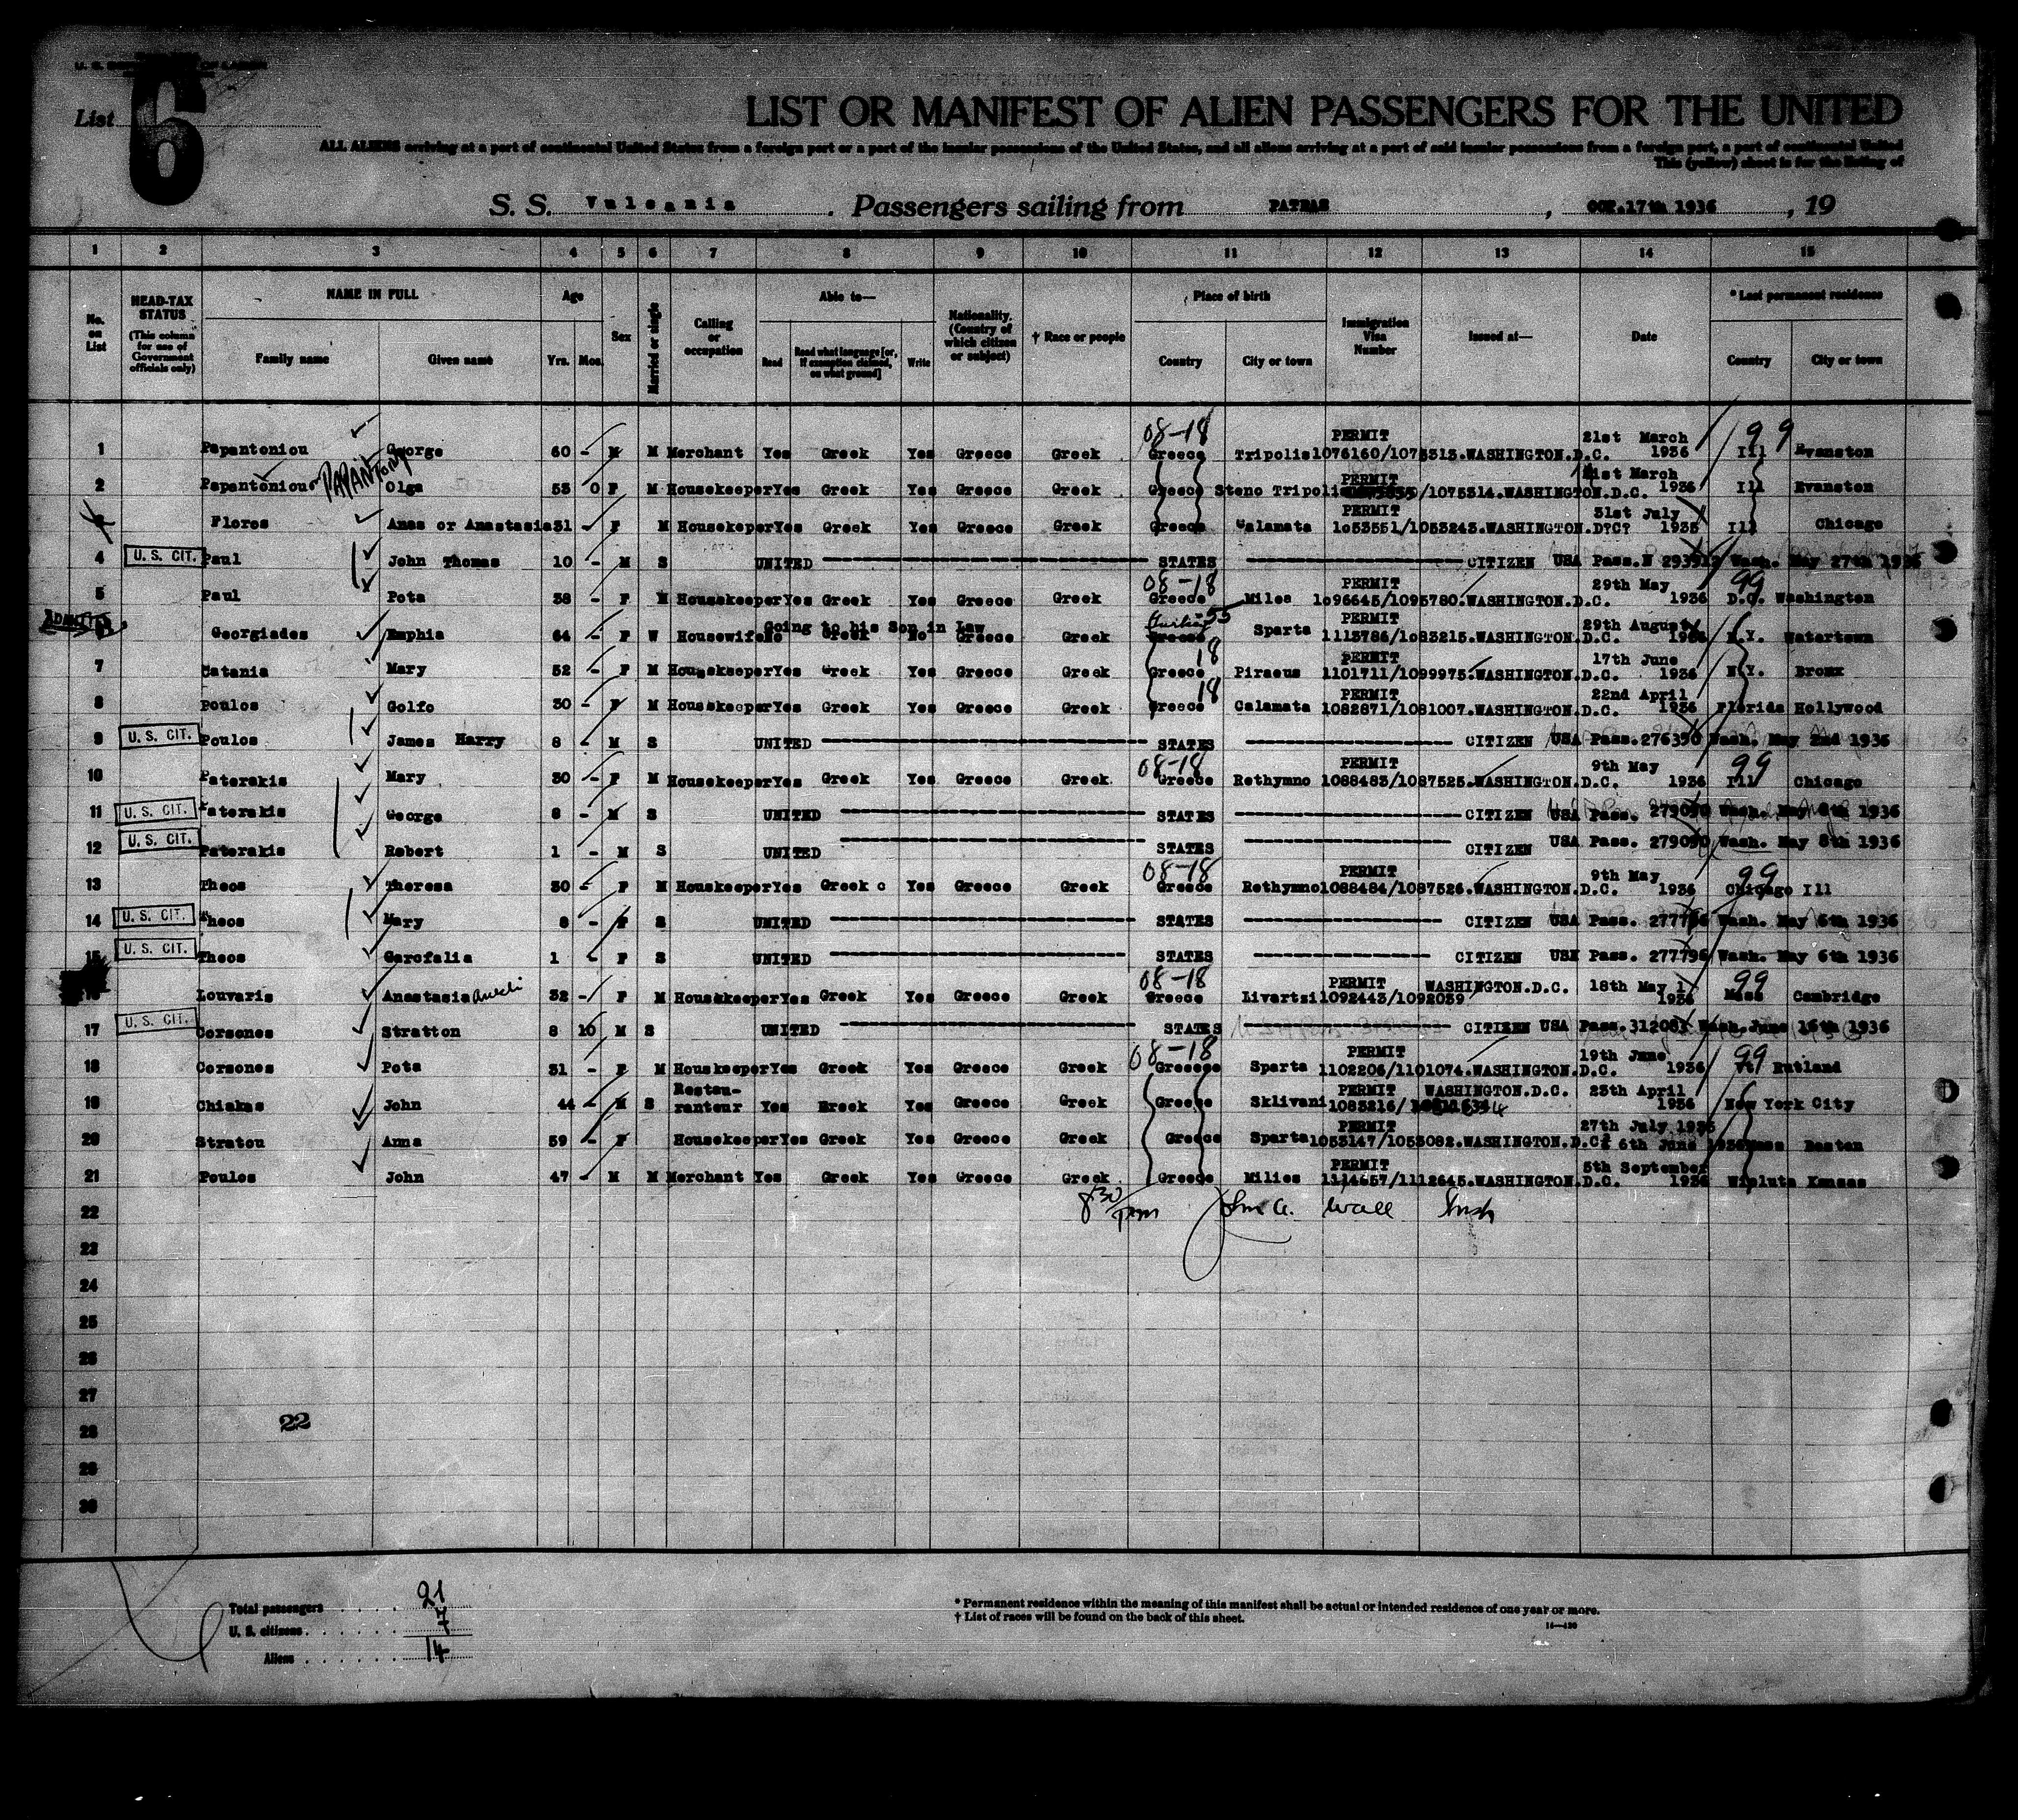 List 6
LIST OR MANIFEST OF ALIEN PASSENGERS FOR THE UNITED
ALL ALIENS arriving at a port of continental United States from a foreign port or a port of the insular possessions of the United States, and all aliens arriving at a port of said insular possessions from a foreign port, a port of continental United
This (yellow) sheet is for the listing of
S. S. Vulcania. Passengers sailing from PATRAS, OCT.17th 1936, 19
1 2 3 4 5 6 7 8 9 10 11 12 13 14 15
No. on List
HEAD-TAX STATUS (This column for use of Government officials only)
NAME IN FULL Family name Given name
Age Yrs. Mos.
Sex
Married or single
Calling or occupation
Able to— Read Read what language [or, if exemption claimed, on what ground] Write
Nationality. (Country of which citizen or subject)
† Race or people
Place of birth Country City or town
Immigration Visa Number
Issued at—
Date
* Last permanent residence Country City or town
1 Papantoniou George 60 - M M Merchant Yes Greek Yes Greece Greek 08-18 Greece Tripolis PERMIT 1076160/1075313.WASHINGTON.D.C. 21st March 1936 99 Ill Evanston
2 Papantoniou Olga 53 0 F M Housekeeper Yes Greek Yes Greece Greek Greece Steno Tripolis PERMIT /1075314.WASHINGTON.D.C. 21st March 1936 Ill Evanston
3 Floros Anas or Anastasia 31 - F M Housekeper Yes Greek Yes Greece Greek Greece Calamata PERMIT 1053551/1053243.WASHINGTON.D?C? 31st July 1935 Ill Chicago
4 U. S. CIT. Paul John Thomas 10 - M S UNITED STATES CITIZEN USA Pass.N Wash. May 27th 1936
5 Paul Pota 38 - F M Housekeeper Yes Greek Yes Greece Greek 08-18 Greece Miles PERMIT 1096645/1095780.WASHINGTON.D.C. 29th May 1936 99 D.C. Washington
ADMITTED
Going to his Son in Law
6 Georgiades Emphia 64 - F W Housewife No Greek No Greece Greek Turkey 55 Greece Sparta PERMIT 1113786/1083215.WASHINGTON.D.C. 29th August 1936 N.Y. Watertown
7 Catania Mary 52 - F M Housekeeper Yes Greek Yes Greece Greek 18 Greece Piraeus PERMIT 1101711/1099975.WASHINGTON.D.C. 17th June 1936 N.Y. Bronx
8 Poulos Golfo 30 - F M Housekeeper Yes Greek Yes Greece Greek 18 Greece Calamata PERMIT 1082871/1081007.WASHINGTON.D.C. 22nd April 1936 Florida Hollywood
9 U. S. CIT. Poulos James Harry 8 - M S UNITED STATES CITIZEN USA Pass.276350 Wash. May 2nd 1936
10 Paterakis Mary 30 - F M Housekeeper Yes Greek Yes Greece Greek 08-18 Greece Rethymno 1088483/1087525.WASHINGTON.D.C. 9th May 1936 99 Ill Chicago
11 U. S. CIT. Paterakis George 8 - M S UNITED STATES CITIZEN USA Pass. 279090 Wash. May 8th 1936
12 U. S. CIT. Paterakis Robert 1 - M S UNITED STATES CITIZEN USA Pass. 279090 Wash. May 8th 1936
13 Theos Theresa 30 - F M Houskeeper Yes Greek c Yes Greece Greek 08-18 Greece Rethymno PERMIT 1088484/1087526.WASHINGTON.D.C. 9th May 1936 99 Chicago Ill
14 U. S. CIT. Theos Mary 8 - F S UNITED STATES CITIZEN USA Pass. 277796 Wash. May 6th 1936
15 U. S. CIT. Theos Garofalia 1 - F S UNITED STATES CITIZEN USA Pass. 277796 Wash. May 6th 1936
16 Louvaris Anastasia 32 - F M Housekeeper Yes Greek Yes Greece Greek 08-18 Greece Livartzi PERMIT 1092443/1092039 WASHINGTON.D.C. 18th May 1936 99 Mass Cambridge
17 U. S. CIT. Corsones Stratton 8 10 M S UNITED STATES CITIZEN USA Pass.312081 Wash.June 16th 1936
18 Corsones Pota 31 - F M Houskeeper Yes Greek Yes Greece Greek 08-18 Greeece Sparta PERMIT 1102206/1101074.WASHINGTON.D.C. 19th June 1936 99 Vt Rutland
19 Chiakas John 44 - M S Restauranteur Yes Ereek Yes Greece Greek Greece Sklivani PERMIT 1083216/ WASHINGTON.D.C. 23th April 1936 New York City
20 Stratou Anna 39 - F Housekeeper Yes Greek Yes Greece Greek Greece Sparta PERMIT 1053147/1053082.WASHINGTON.D.C. 27th July 1935 6th June 1936 Mass Boston
21 Poulos John 47 - M M Merchant Yes Greek Yes Greece Greek Greece Milies PERMIT 1114657/1112645.WASHINGTON.D.C. 5th September 1936 Kansas
22 John A. Wall
23
24
25
26
27
28 22
29
30
Total passengers . . . . . 21
U. S. citizens . . . . . . 7
Aliens . . . . . . 14
* Permanent residence within the meaning of this manifest shall be actual or intended residence of one year or more.
† List of races will be found on the back of this sheet.